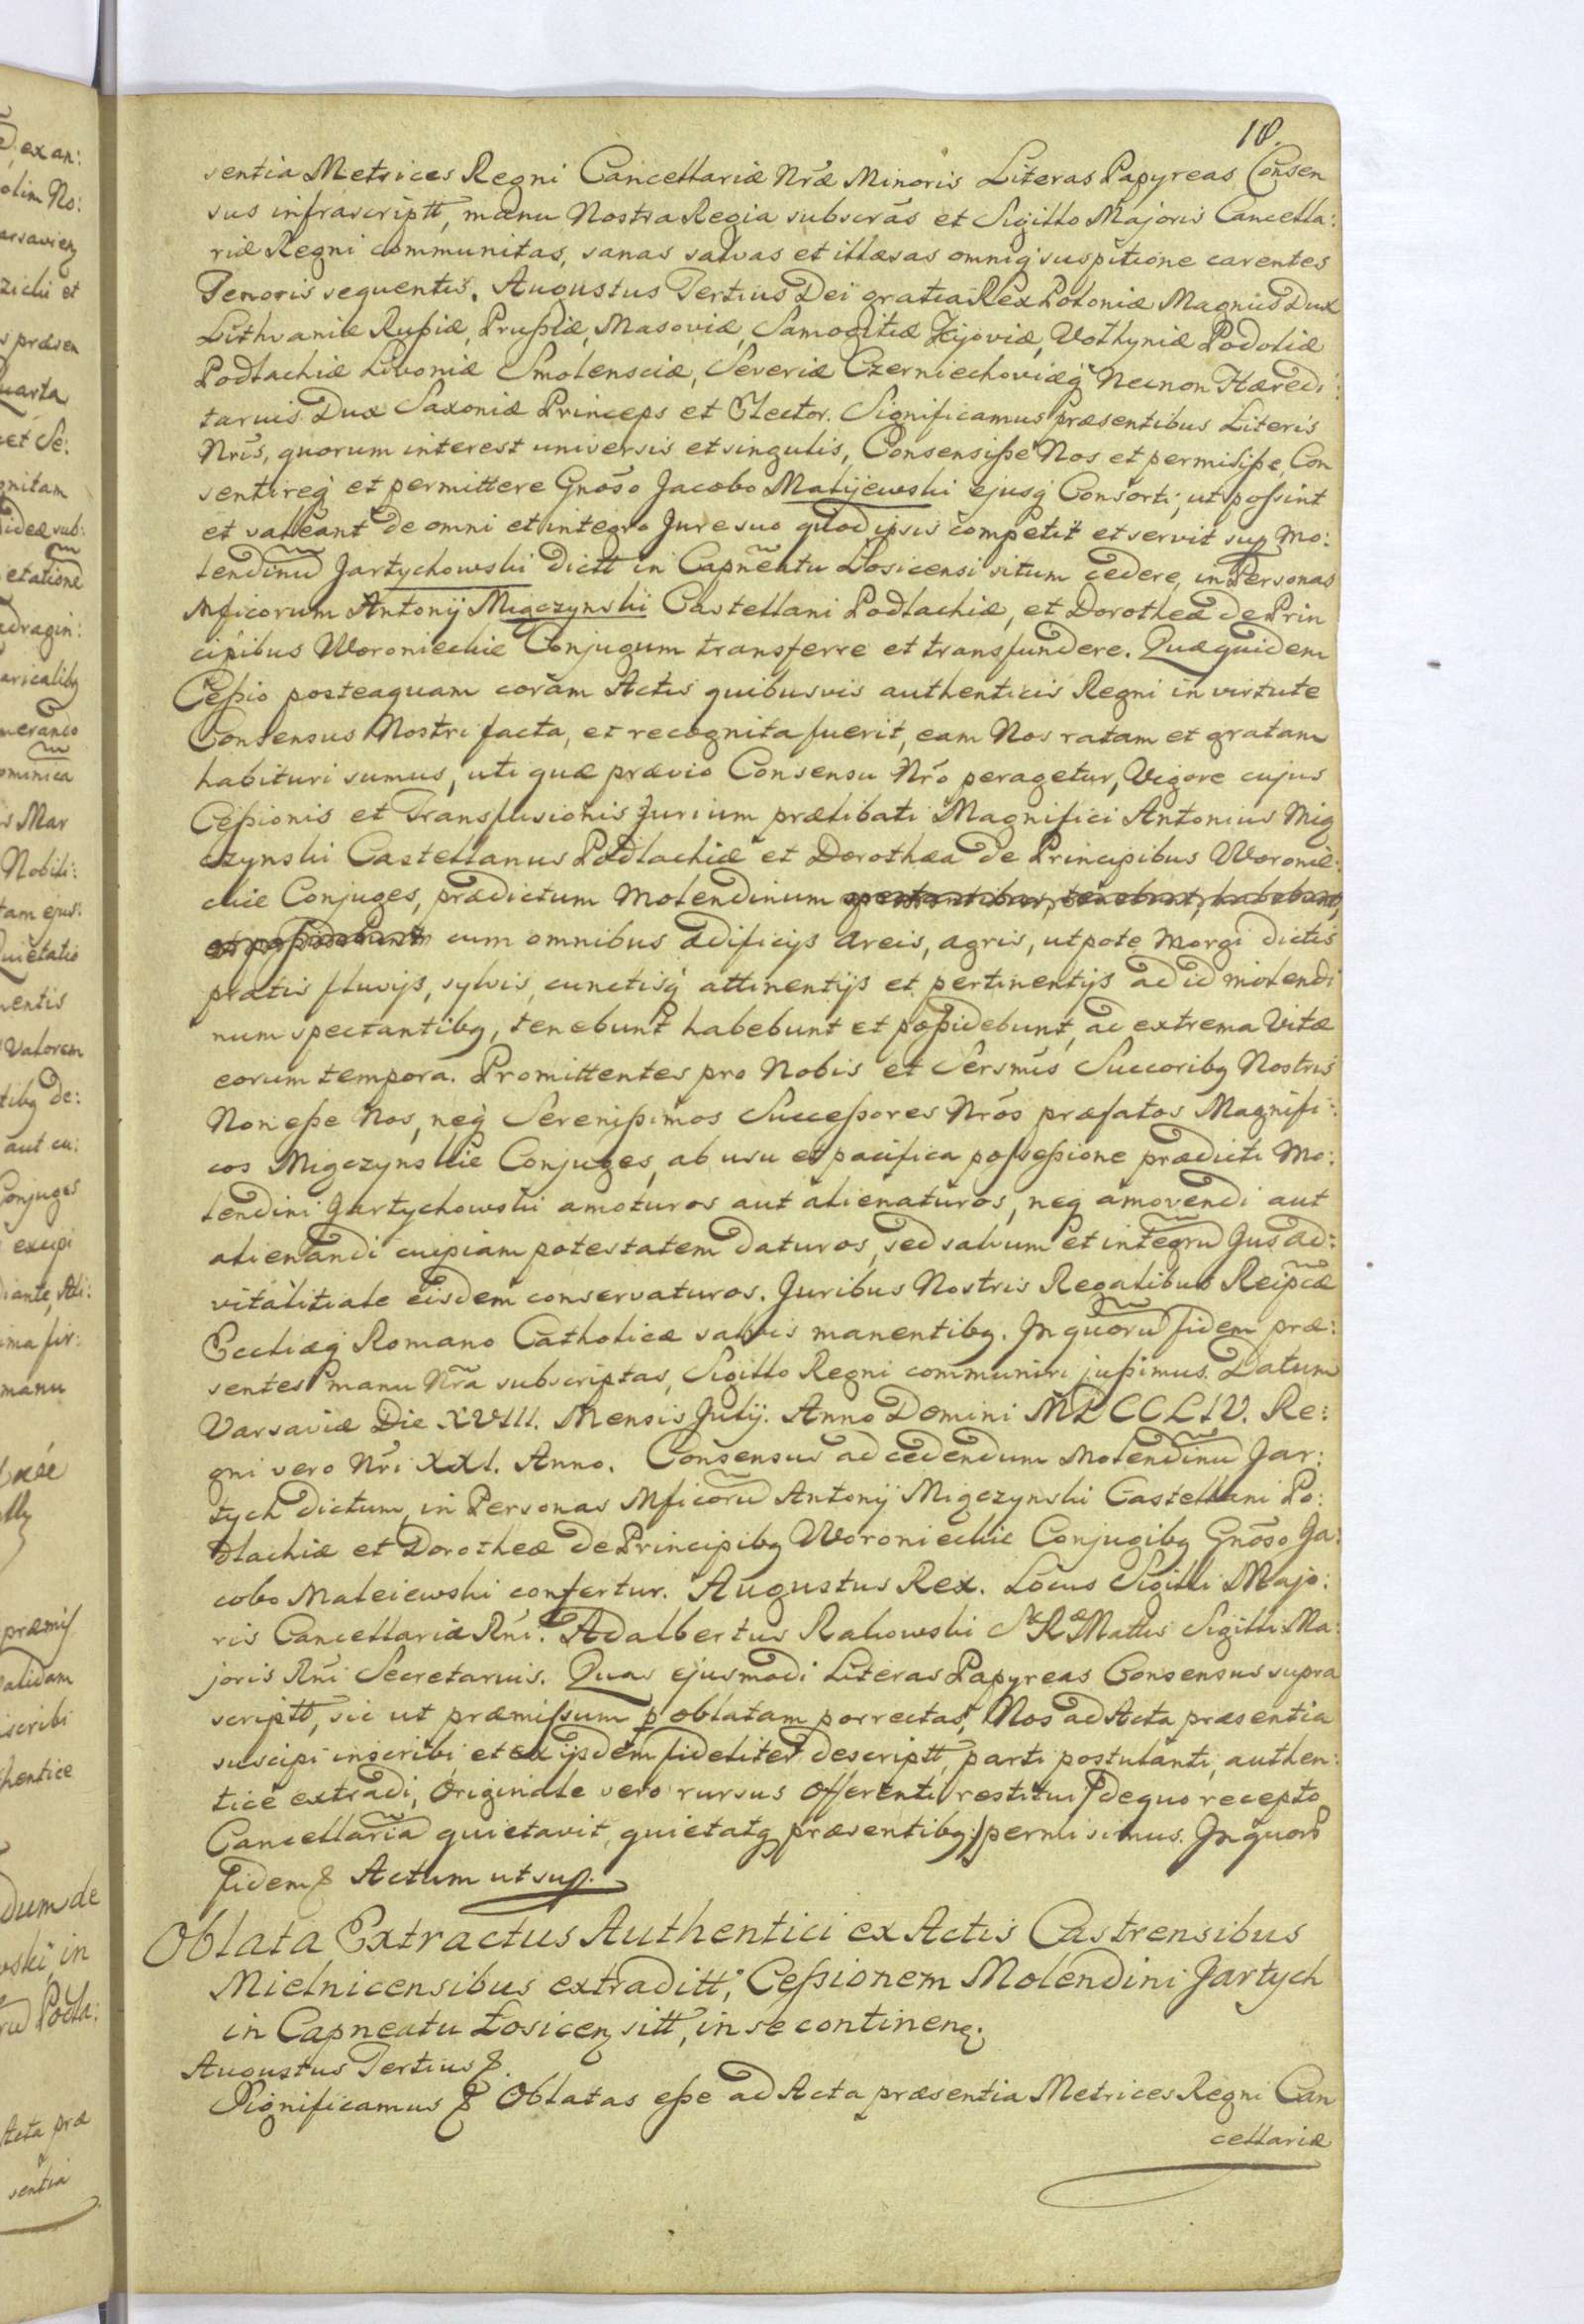 18.
sentia Metrices Regni Cancellariæ Nræ Minoris Literas Papyreas Consen
sus infrascriptt, manu Nostra Regia subscras et Sigillo Majoris Cancella:
riæ Regni communitas, sanas salvas et illæsas omniq́ suspitione carentes
Tenoris sequentis. Augustus Tertius Dei gratia Rex Poloniæ Magnus Dux
Lithvaniæ Rußiæ, Prußiæ, Masoviæ, Samogitiæ Kijoviæ, Volhyniæ Podoliæ
Podlachiæ Livoniæ Smolensciæ, Severiæ Czerniechoviæq́ Necnon Hæredi:
tarius Dux Saxoniæ Princeps et Elector. Significamus præsentibus Literis
Nris, quorum interest universis et singulis, Consensiße Nos et permisiße, Con
sentireq́ et permittere Gnõso Jacobo Malijewski ejusq́ Consorti; ut possint
et valeant de omni et integro Jure suo quod ipsis competit et servit sup Mo:
lendinũ Jartychowski dictt in Capñeatu Łosicensi situm cedere, in Personas
Mficorum Antonij Miączynskij Castellani Podlachiæ, et Dorotheæ de Prin
cipibus Woronieckie Conjugum transferre et transfundere. Quæquidem
Ceßio posteaquam coram Actis quibusvis authenticis Regni in virtute
Consensus Nostri facta, et recognita fuerit, eam Nos ratam et gratam
habituri sumus, uti quæ prævio Consensu Nrõ peragetur, Vigore cujus
Ceßionis et Transfusionis Jurium prælibati Magnifici Antonius Mią
czynski Castellanus Podlachiæ et Dorothæa de Principibus Woronie:
ckie Conjuges, prædictum Molendinum spectantibus, tenebunt, habebunt,
et poßidebunt cum omnibus ædificijs areis, agris, utpote Morgi dictis
pratis fluvijs, sylvis, cunctisq́ attinentijs et pertinentijs ad id molendi
num spectantibq, tenebunt habebunt et poßidebunt, ad extrema Vitæ
eorum tempora. Promittentes pro Nobis et Sersmis Succoribq Nostris
Non eße Nos, neq́ Serenißimos Succeßores Nrõs præfatos Magnifi:
cos Miączynskie Conjuges, ab usu et pacifica possessione prædicti Mo:
lendini Jartychowski amoturos aut alienaturos, neq amovendi aut
alienandi cuipiam potestatem daturos, sed salvum et integrũ Jus ad:
vitalitiale eisdem conservaturos. Juribus Nostris Regalibus Reipcæ
Eccliæq Romano Catholicæ salvis manentibq. In quorũ fidem præ:
sentes manu Nrã subscriptas, Sigillo Regni communiri jußimus. Datum
Varsaviæ Die XVIII. Mensis Julij. Anno Domini MDCCLIV. Re:
gni vero Nri XXI. Anno. Consensus ad cedendum Molendinũ Jar:
tych dictum, in Personas Mficorũ Antonij Miączynski Castellani Po:
dlachiæ et Dorotheæ de Principibq Woronieckie Conjugibq Gnõso Ja:
cobo Maleiewski confertur. Augustus Rex. Locus Sigilli Majo:
ris Cancellariæ Rni. Adalbertus Rakowski S Ræ Mattis Sigilli Ma:
joris Rni Secretarius. Quas ejusmodi Literas Papyreas Consensus supra
scriptt, sic ut præmissum p oblatam porrectas, Nos ad Acta præsentia
suscipi inscribi et ex ijsdem fideliter descriptt, parti postulanti, authen:
tice extradi, Originale vero rursus Offerenti restitui /de quo recepto
Cancellariã quietavit, quietatq præsentibq:/ permisimus. In quorũ
fidem & Actum ut sup.
Oblata Extractus Authentici ex Actis Castrensibus
Mielnicensibus extraditt, Ceßionem Molendini Jartych
in Capneatu Łosicen sitt, in se continen.
Augustus Tertius &.
Significamus & Oblatas eße ad Acta præsentia Metrices Regni Can
cellariæ